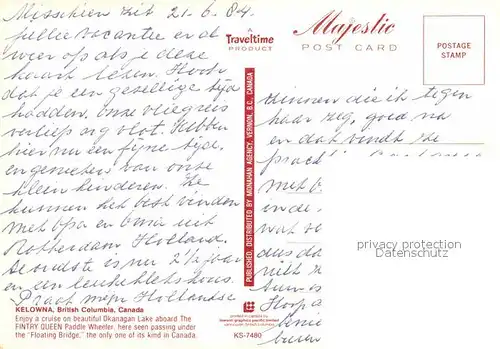 Misschien zit 21-6-84
jullie vacantie er al
weer op als je deze
kaart lezen. Hoop
dat je een gezellige tijd
hadden, onze vliegreis
verliep erg vlot. Hebben
hier nu een fijne tijd,
en genieten van onze
kleinkinderen. Ze
kunnen het best vinden
met opa en oma uit
Rotterdam Holland.
De oudste is ner 2 1/2 jaar
en een leuke kletskous.
Praat mijn Hollandse
KELOWNA, British Columbia, Canada
Enjoy a cruise on beautiful Okanagan Lake aboard The
FINTRY QUEEN Paddle Wheeler, here seen passing under
the "Floating Bridge," the only one of its kind in Canada.
A
Traveltime
PRODUCT
PUBLISHED, DISTRIBUTED BY MONAHAN AGENCY, VERNON, B.C. CANADA
Majestic
POST CARD
POSTAGE
STAMP
zinnen die ik tegen
haar zeg, goed na
en dat vindt ze
prach
met
inde
wat
dus da
niet
Hoop
privacy protection
Datenschutz
KS-7480